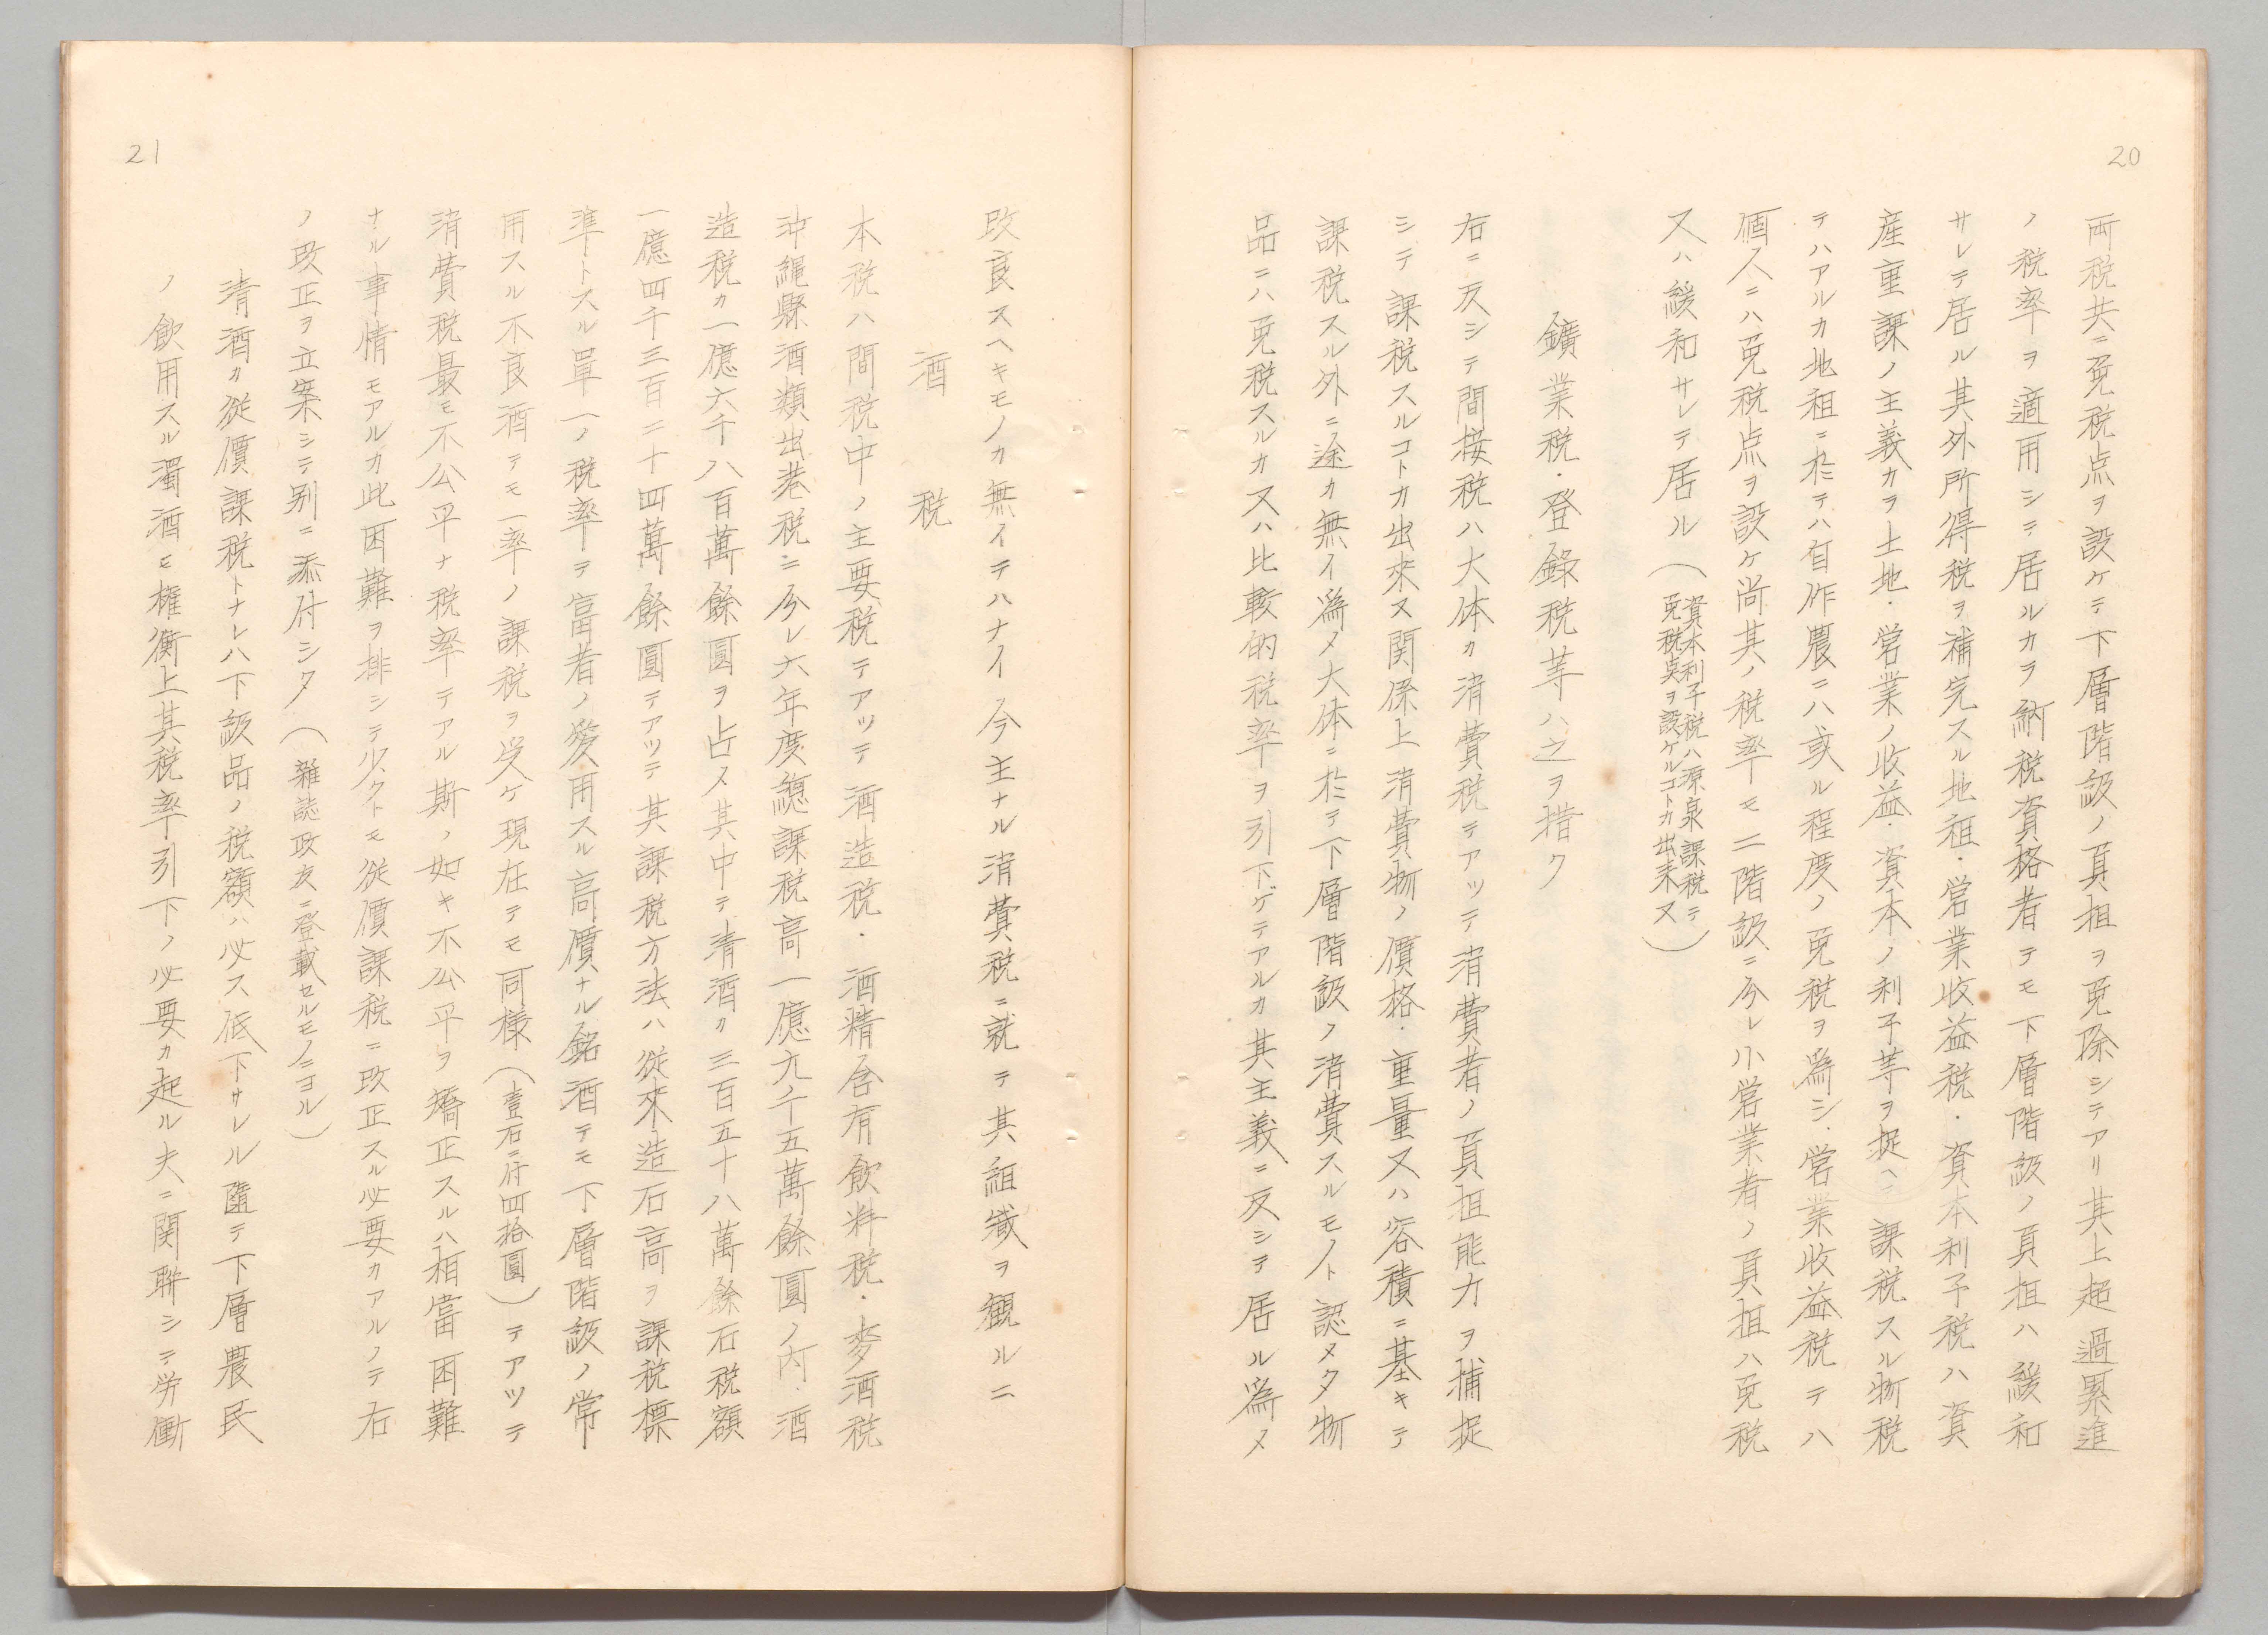 20
両税共ニ免税点ヲ設ケテ下層階級ノ負担ヲ免除シテアリ其上超過累進
ノ税率ヲ適用シテ居ルカラ納税資格者テモ下層階級ノ負担ハ緩和
サレテ居ル其外所得税ヲ補完スル地租・営業收益税・資本利子税ハ資
産重課ノ主義カラ土地・営業ノ收益・資本ノ利子等ヲ捉ヘ課税スル物税
テハアルカ地租ニ於テハ自作農ニハ或ル程度ノ免税ヲ為シ・営業收益税テハ
個人ニハ免税点ヲ設ケ尚其ノ税率モ二階級ニ分レ小営業者ノ負担ハ免税
又ハ緩和サレテ居ル(資本利子税ハ源泉課税テ
免税点ヲ設ケルコトカ出来ヌ)
鑛業税・登錄税等ハ之ヲ措ク
右ニ反シテ間接税ハ大体カ消費税テアッテ消費者ノ負担能力ヲ捕捉
シテ課税スルコトカ出來ヌ関係上消費物ノ價格・重量又ハ容積ニ基キテ
課税スル外ニ途カ無イ爲メ大体ニ於テ下層階級ノ消費スルモノト認メタ物
品ニハ免税スルカ又ハ比較的税率ヲ引下ゲテアルカ其主義ニ反シテ居ル爲メ
改良スヘキモノカ無イテハナイ今主ナル消費税ニ就テ其組織ヲ観ルニ
酒税
本税ハ間税中ノ主要税テアッテ酒造税・酒精含有飲料税・麥酒税
沖繩縣酒類出港税ニ分レ六年度總課税高一億九千五萬餘圓ノ内・酒
造税カ一億六千八百萬餘圓ヲ占ヌ其中テ清酒カ三百五十八萬餘石税額
一億四千三百二十四萬餘圓テアッテ其課税方法ハ従來造石高ヲ課税標
準トスル單一ノ税率テ富者ノ愛用スル高價ナル銘酒テモ下層階級ノ常
用スル不良酒テモ一率ノ課税ヲ受ケ現在テモ同様(壹石ニ付四拾圓)テアッテ
消費税最モ不公平ナ税率テアル斯ノ如キ不公平ヲ矯正スルハ相當困難
ナル事情モアルカ此困難ヲ排シテ少クトモ従價課税ニ改正スル必要カアルノテ右
ノ改正ヲ立案シテ別ニ添付シタ(雑誌政友ニ登載セルモノニヨル)
清酒カ従價課税トナレハ下級品ノ税額ハ必ス低下サレル隨テ下層農民
ノ飲用スル濁酒モ権衡上其税率引下ノ必要カ起ル夫ニ関聯シテ労働
21